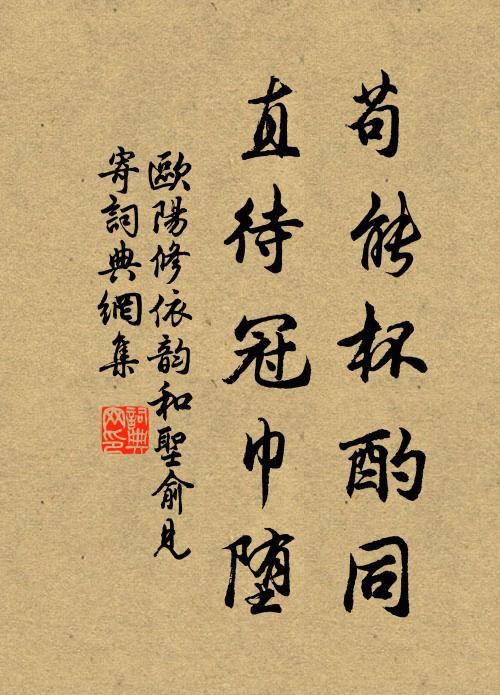 苟能杯酌同
直待冠巾堕
歐陽修依韵和聖俞見
寄詞典網集
詞典
网印